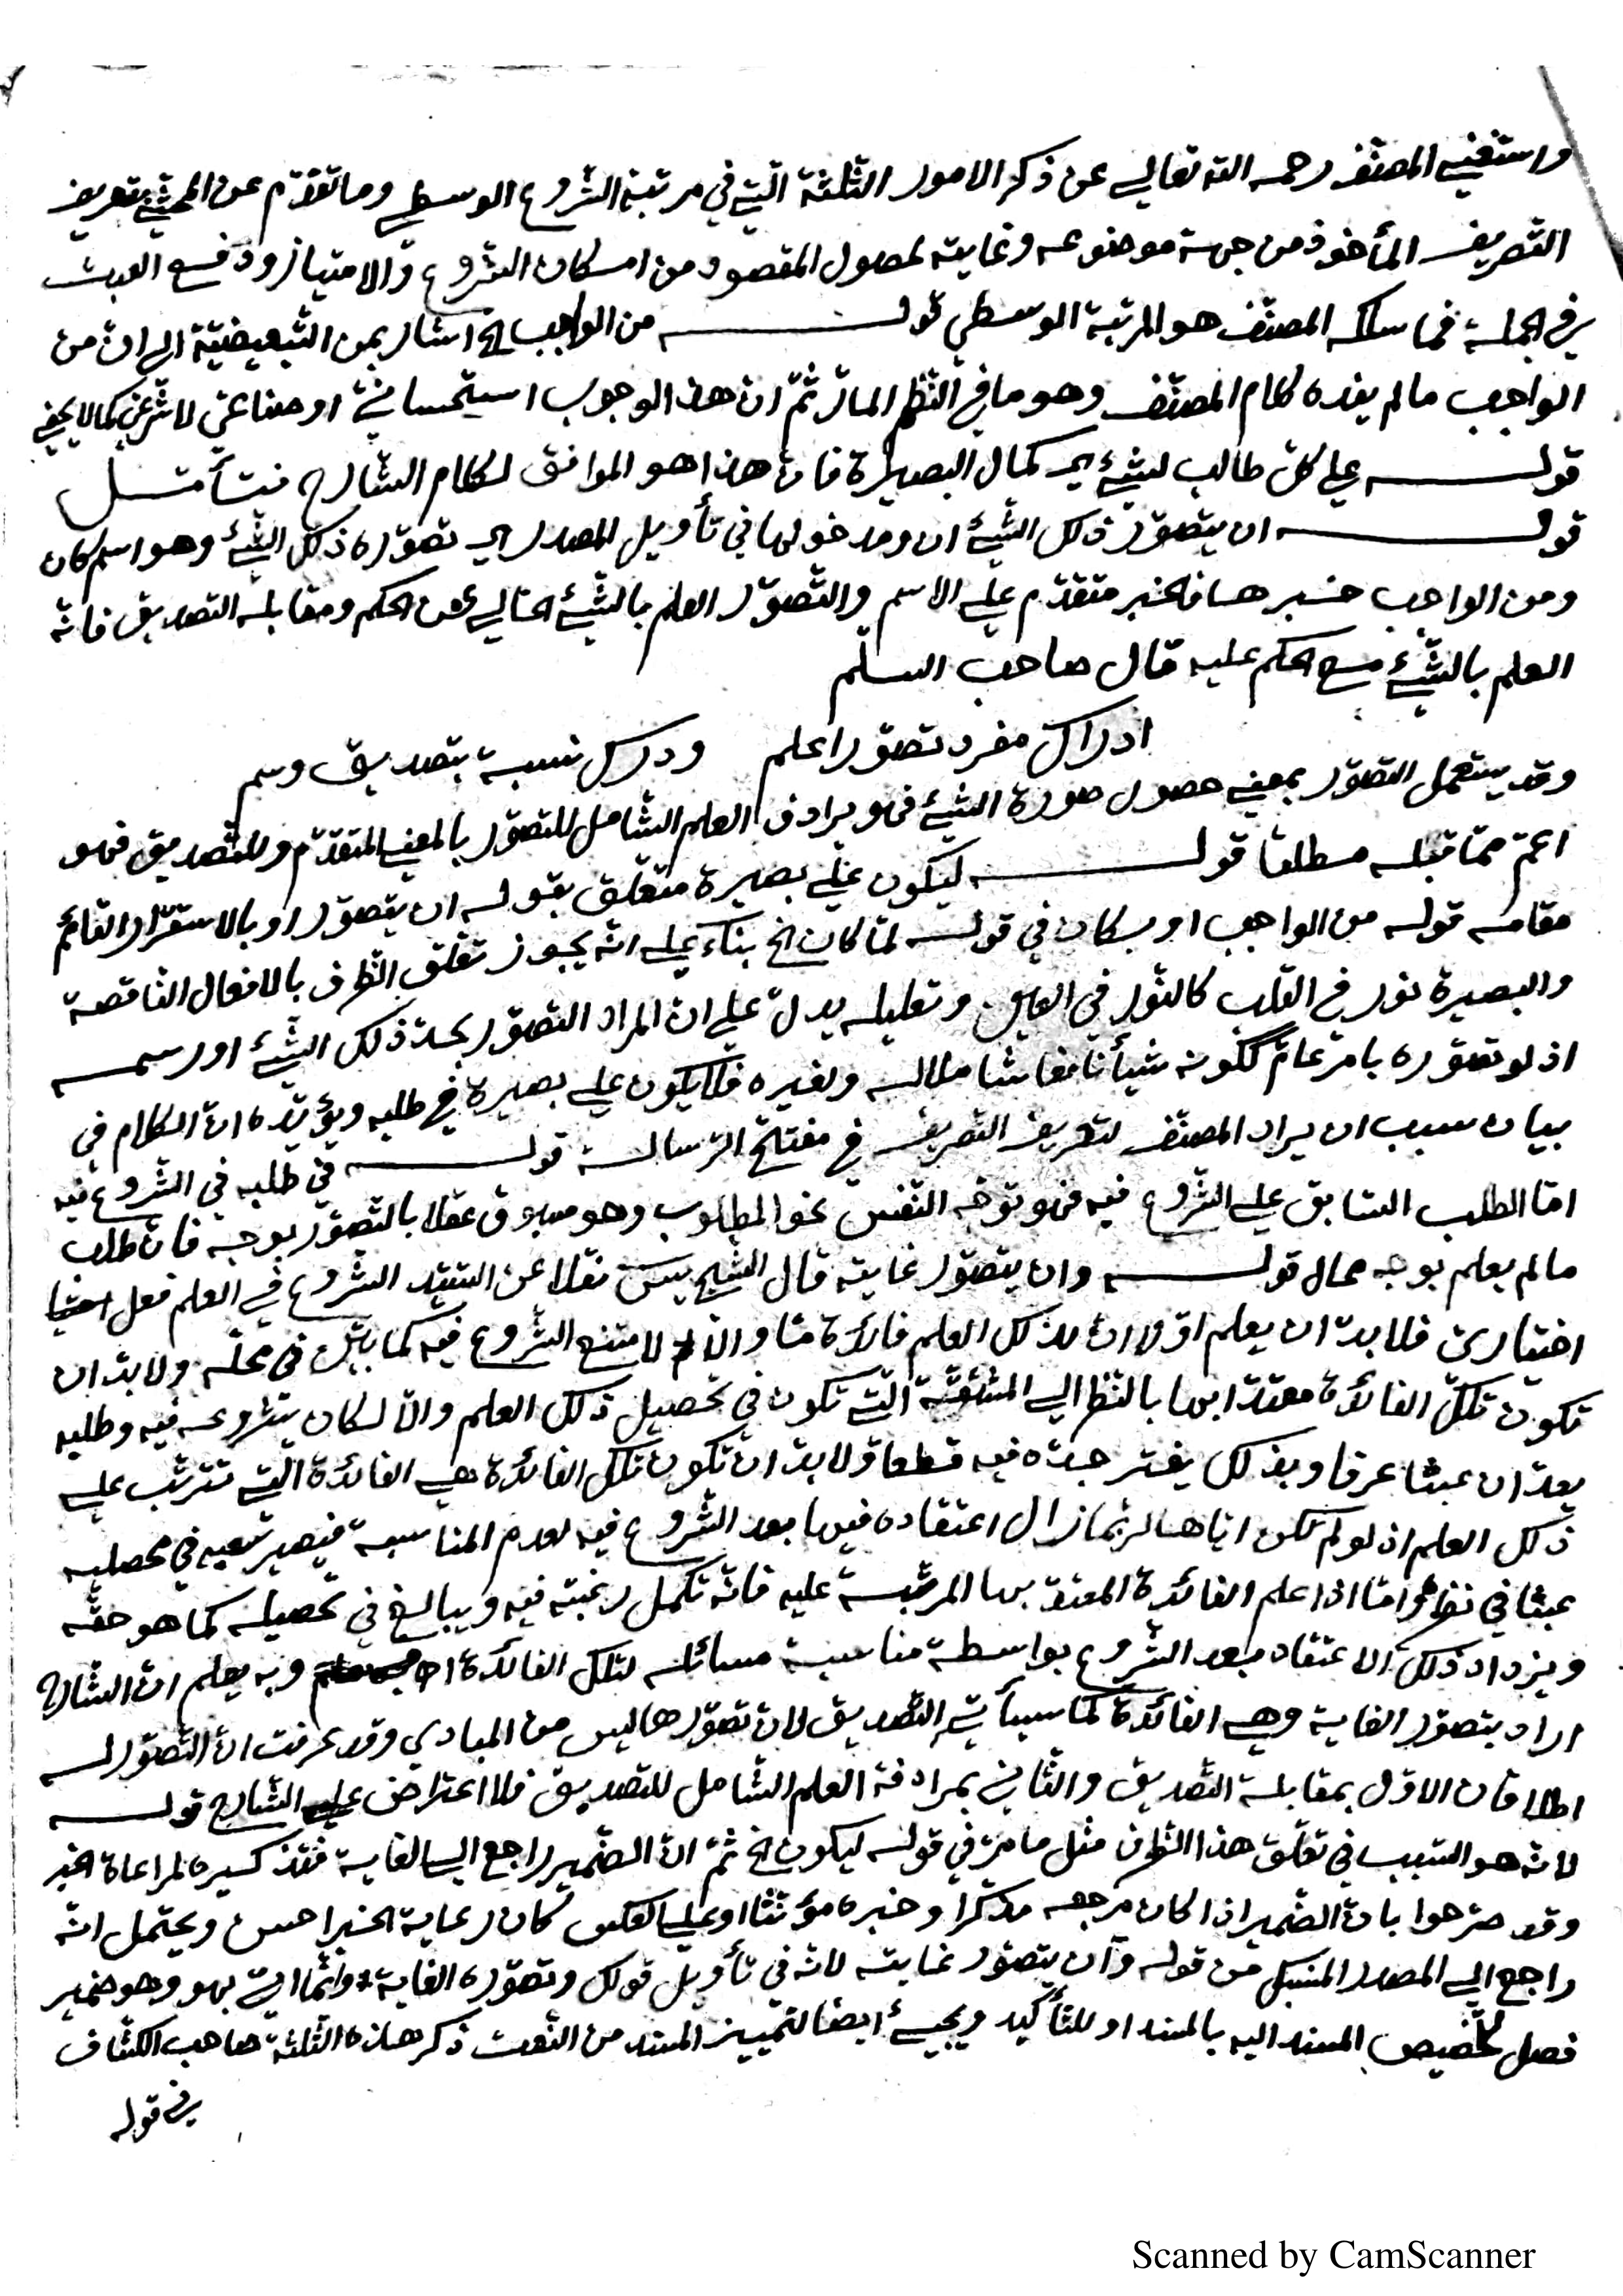 واستغني المصنّف رحمه الله تعالي عن ذكر الامور الثلثة الّتي في مرتبة الشّروع الوسطي وما تقدّم عن المحشّي بتعريف
التصريف المأخوذ من جهة موضوعه وغايته لحصول المقصود من امكان الشّروع والامتياز ودفع العبث
في الجملة فما سلكه المصنّف هو المرتبة الوسطي قولـه من الواجب الخ اشار بمن التّبعيضيّة الي انّ من
الواجب ما لم يفده كلام المصنّف وهو ما في النّظم المارّ ثمّ انّ هذا الوجوب استحسانيّ او صناعيّ لا شرعيّ كما لا يخفي
قولـه علي كلّ طالب لشيئ اي كمال البصيرة فانّ هذا هو الموافق لكلام الشّارح فتأمّـل
قولـه ان يتصوّر ذلك الشّيئ ان ومدخولها في تأويل المصدر اي تصوّره ذلك الشّيئ وهو اسم كان
ومن الواجب خبرها فالخبر متقدّم علي الاسم والتّصوّر العلم بالشّيئ الخالي عن الحكم ومقابله التصديق فانّه
العلم بالشّيئ مع الحكم عليه قال صاحب السلّم
ادراك مفرد تصوّرا علم ودرك نسبة بتصديق وسم
وقد يستعمل التصوّر بمعني حصول صورة الشّيئ فهو يرادف العلم الشّامل للتصوّر بالمعني المتقدّم وللتّصديق فهو
اعمّ ممّا قبله مطلقا قولـه ليكون علي بصيرة متعلّق بقوله ان يتصوّر او بالاستقرار القائم
مقامه قوله من الواجب او بكان في قوله لمّا كان الخ بناء علي انّه يجوز تعلّق الظّرف بالافعال النّاقصة
والبصيرة نور في القلب كالنّور في العين وتعليله يدلّ علي انّ المراد التصوّر بحدّ ذلك الشّيئ او رسمه
اذ لو تصوّره بامر عامّ ككونه شيأ نافعا شاملا له ولغيره فلا يكون علي بصيرة في طلبه ويؤيّده انّ الكلام في
بيان سبب ايراد المصنّف لتعريف التصريف في مفتتح الرّسالة قولـه في طلبه في الشّروع فيه
امّا الطلب السّابق علي الشّروع فيه فهو توجّه النّفس نحو المطلوب وهو مسبوق عقلا بالتصوّر بوجه فانّ طلب
ما لم يعلم بوجه محال قولـه وان يتصوّر غايته قال الشّيخ يس نقلا عن السّيّد الشّروع في العلم فعل
اختياريّ فلا بدّ ان يعلم اوّلا انّ لذلك العلم فائدة مّا والّا لامتنع الشّروع فيه كما بيّن في محلّه ولا بدّ ان
تكون تلك الفائدة معتدّا بها بالنّظر الي المشقّة الّتي تكون في تحصيل ذلك العلم والّا لكان شروعه فيه وطلبه
يعدّ ان عبثا عرفا وبذلك يفتر جدّه فيه قطعا ولا بدّ ان تكون تلك الفائدة هي الفائدة الّتي تترتّب علي
ذلك العلم اذ لو لم تكن ايّاها لربّما زال اعتقاده فيها بعد الشّروع فيه لعدم المناسبة فيصير سعيه في تحصيله
عبثا في نظره وامّا اذا علم الفائدة المعتدّ بها المرتّبة عليه فانّه تكمل رغبته فيه ويبالغ في تحصيله كما هو حقّه
ويزداد ذلك الاعتقاد بعد الشّروع بواسطة مناسبة مسائله لتلك الفائدة اه وبه يعلم انّ الشّارح
اراد بتصوّر الغاية وهي الفائدة كما سيأتي التّصديق لان تصوّرها ليس من المبادي وقد عرفت انّ التّصوّر له
اطلاقان الاوّل بمقابلة التّصديق والثّاني بمرادفة العلم الشّامل للتصديق فلا اعتراض علي الشّارح قولـه
لانّه هو السّبب في تعلّق هذا الظّرف مثل ما مرّ في قوله ليكون الخ ثمّ انّ الضّمير راجع الي الغاية فقد كسيره لمراعاة الخبر
وقد صرّحوا بانّ الضّمير اذا كان مرجعه مذكّرا وخبره مؤنّثا او علي العكس كان رعاية الخبر احسن ويحتمل انّه
راجع الي المصدر المنسبك من قوله وان يتصوّر غايته لانّه في تأويل قولك وتصوّره الغاية وانّما اتي بهو وهو ضمير
فصل لتخصيص المسند اليه بالمسند او للتّأكيد ويجيئ ايضا لتمييز المسند من النّعت ذكر هذه الثّلثة صاحب الكشّاف
في قوله
Scanned by CamScanner